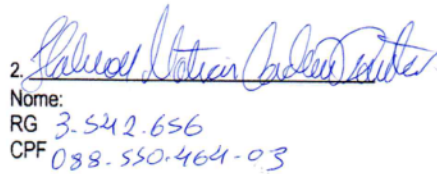 2.
Nome:
RG 3.542.656
CPF 088.550.464-03